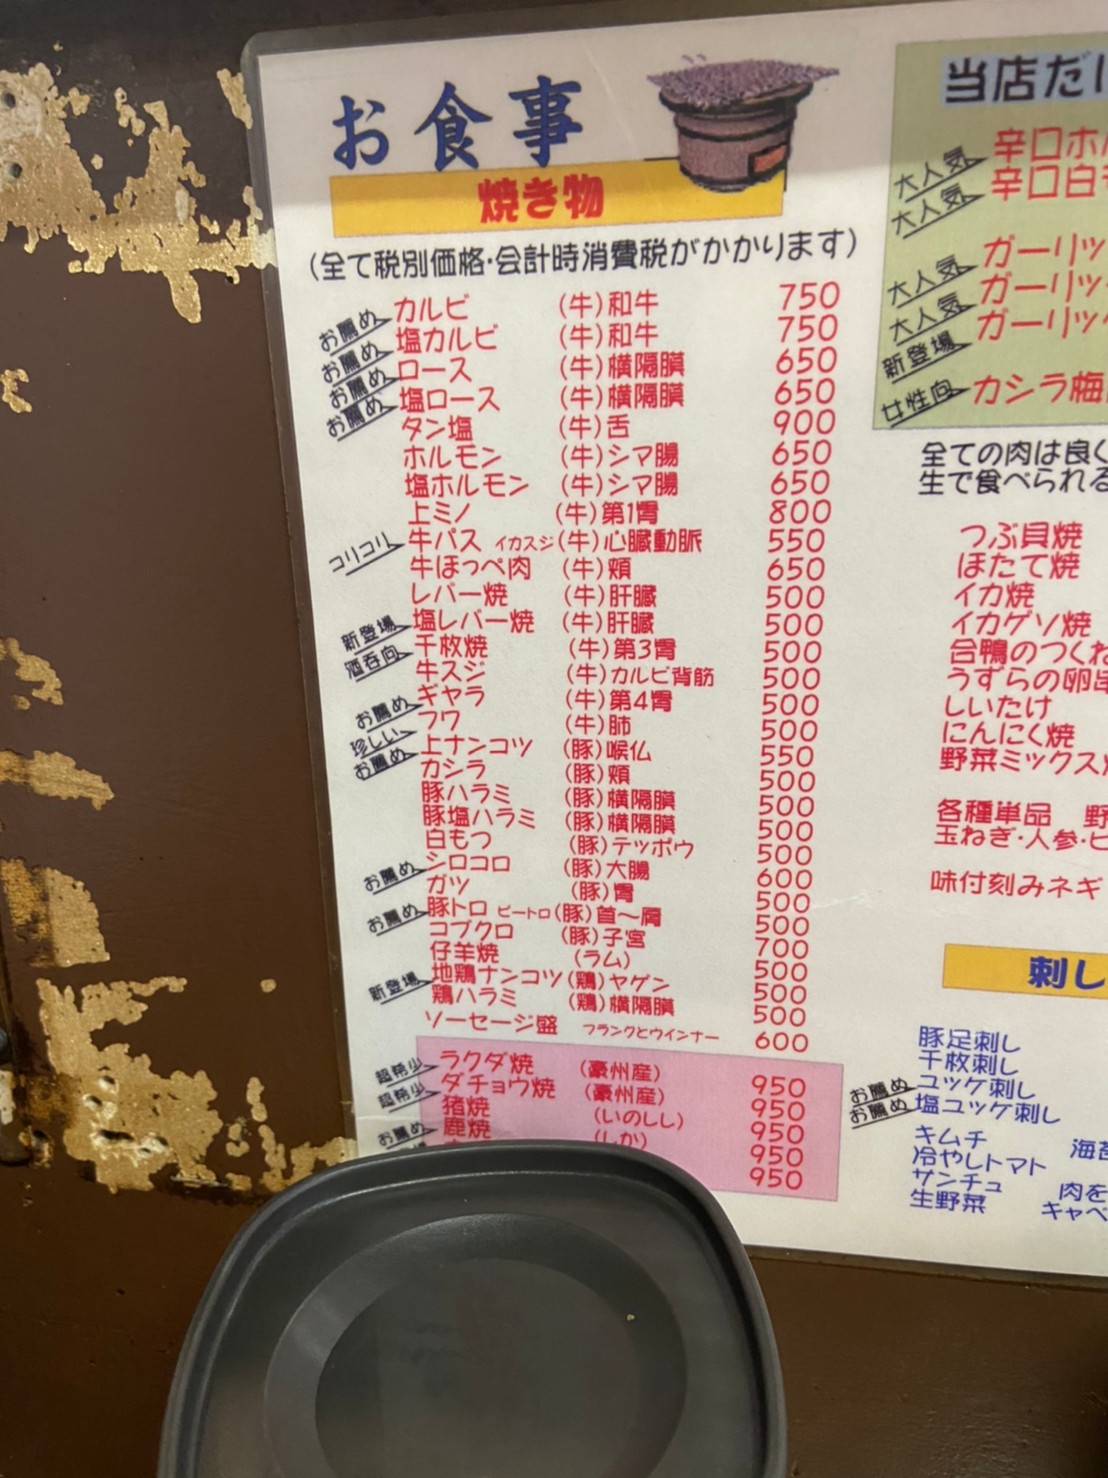 お食事
焼き物
(全て税別価格・会計時消費税がかかります)
カルビ (牛)和牛 750
お薦め 塩カルビ (牛)和牛 750
お薦め ロース (牛)横隔膜 650
お薦め 塩ロース (牛)横隔膜 650
お薦め タン塩 (牛)舌 900
ホルモン (牛)シマ腸 650
塩ホルモン (牛)シマ腸 650
上ミノ (牛)第1胃 800
コリコリ 牛パス イカスジ(牛)心臓動脈 550
牛ほっぺ肉 (牛)頬 650
レバー焼 (牛)肝臓 500
塩レバー焼 (牛)肝臓 500
新登場 千枚焼 (牛)第3胃 500
酒呑向 牛スジ (牛)カルビ背筋 500
ギヤラ (牛)第4胃 500
お薦め フワ (牛)肺 500
珍しい 上ナンコツ (豚)喉仏 550
お薦め カシラ (豚)頬 500
豚ハラミ (豚)横隔膜 500
豚塩ハラミ (豚)横隔膜 500
白もつ (豚)テッポウ 500
シロコロ (豚)大腸 600
お薦め ガツ (豚)胃 500
豚トロ ピートロ(豚)首〜肩 500
お薦め コブクロ (豚)子宮 700
仔羊焼 (ラム) 500
地鶏ナンコツ(鶏)ヤゲン 500
新登場 鶏ハラミ (鶏)横隔膜 500
ソーセージ盛 フランクとウインナー 600
超希少 ラクダ焼 (豪州産) 950
超希少 ダチョウ焼 (豪州産) 950
猪焼 (いのしし) 950
お薦め 鹿焼 (しか) 950
950
当店だけ
大人気 辛口ホル
大人気 辛口白
大人気 ガーリッ
大人気 ガーリッ
新登場 ガーリック
女性向 カシラ梅
全ての肉は良く
生で食べられる
つぶ貝焼
ほたて焼
イカ焼
イカゲソ焼
合鴨のつくね
うずらの卵串
しいたけ
にんにく焼
野菜ミックス
各種単品 野
玉ねぎ・人参・ピ
味付刻みネギ
刺し
豚足刺し
千枚刺し
お薦め ユッケ刺し
お薦め 塩ユッケ刺し
キムチ 海苔
冷やしトマト
サンチュ 肉を
生野菜 キャベ